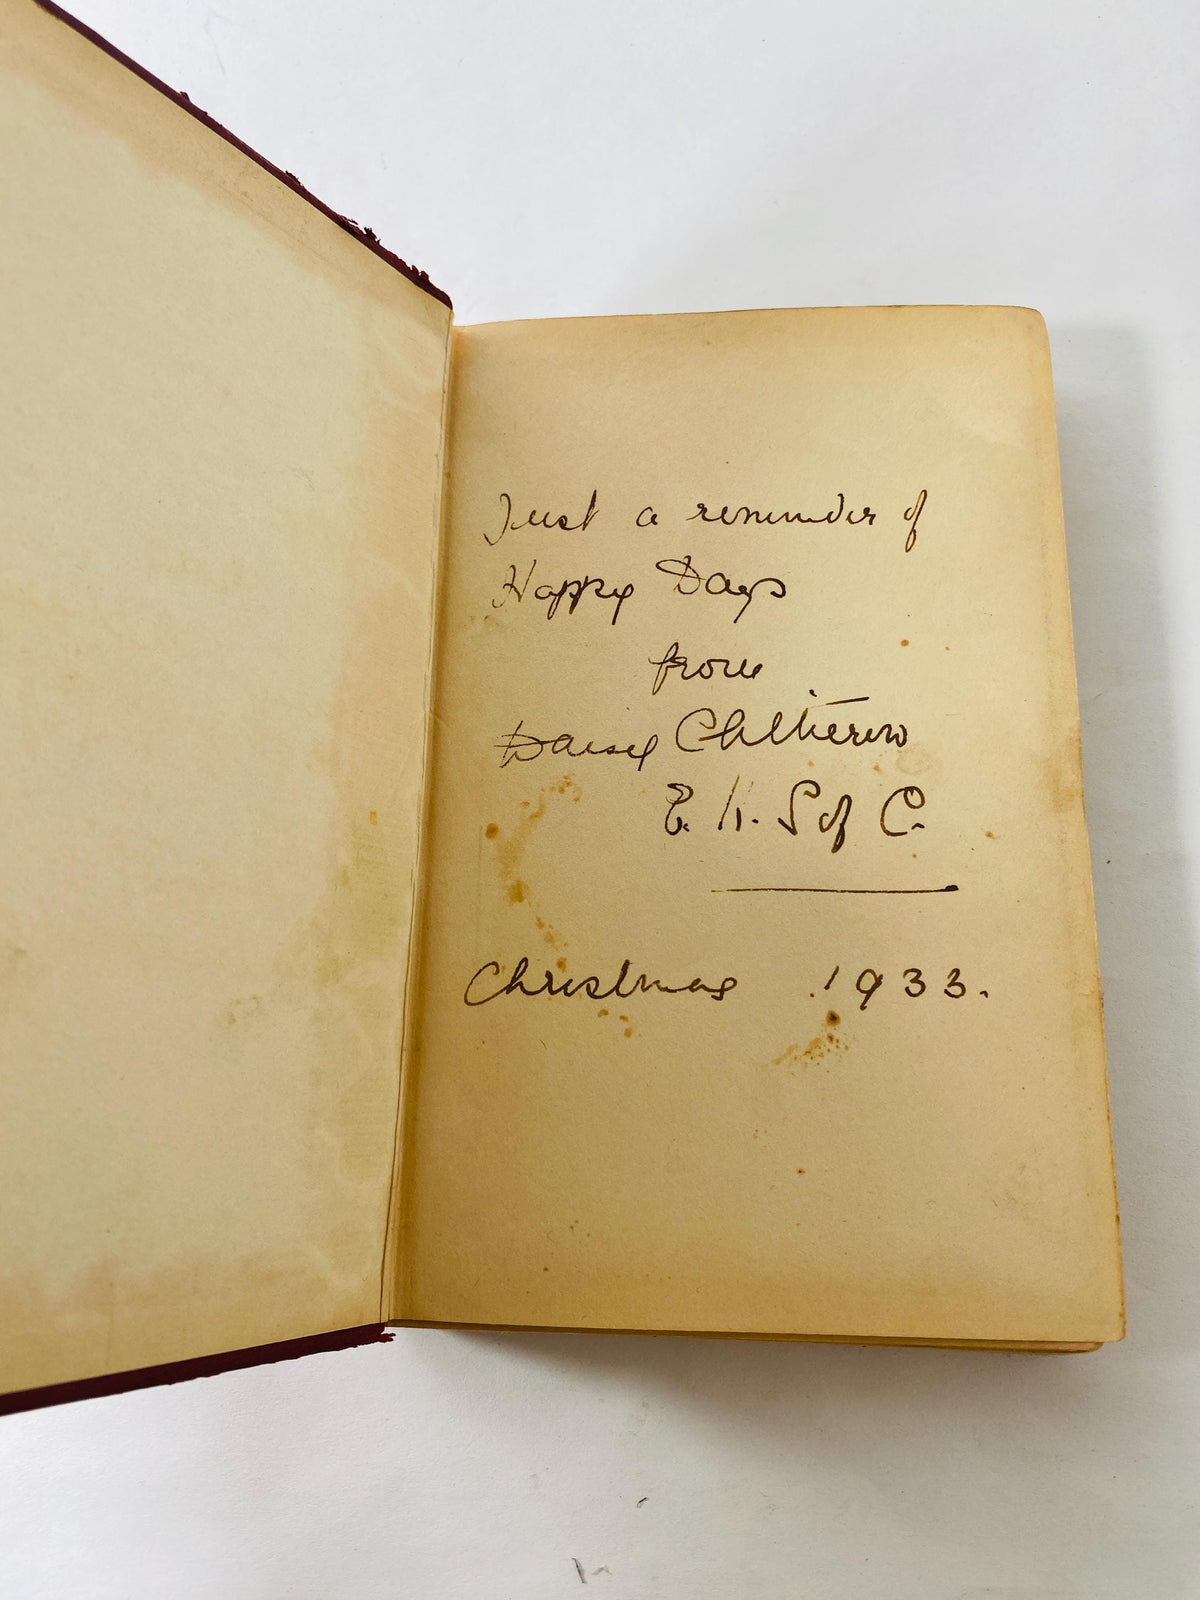 Just a reminder of
Happy Days
from
Daisy
E. K. S of C.
Christmas 1933.